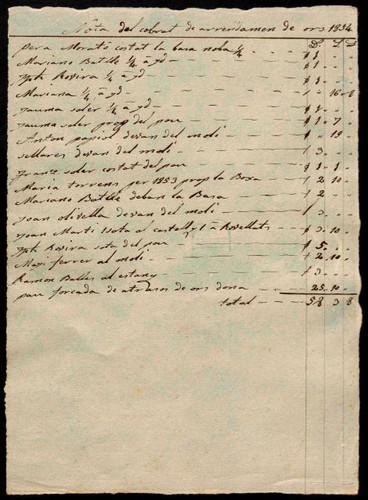 Nota del cobrat de arrendamen de ors 1854
pera Morató costat la basa nova ¼ - - - ł 1
Mariano Batlle ¼ a jd - - - ł 1
Jph Rovira ¼ a jd - - - ł 1
Mariana ¼ a jd - - - 1 . 16 . 8
Jauma soler ¼ a jd - - - ł 1
Jauma soler prop del pou - - - ł 1 . 7
Anton papiol devan del moli - - - 1 . 19
sellares devan del moli - - - ł 3
Franco soler costat del pou - - - ł 1 . 1
Maria torrens per 1853 prop la Bosa - - - ł 2 . 10
Mariano Batlle deban la Basa - - - ł 2
Joan olivella devan del moli - - - ł 3
Joan Marti sota al castell a Rovellats - - - ł 3 . 10
Jph Rovira sota del pou - - - ł 5
Maji ferrer al moli - - - ł 2 . 10
Ramon Balles al estany - - - ł 3
pau forcada de atrasos de ors dona - - - 25 . 10
total - - - 58 3 8